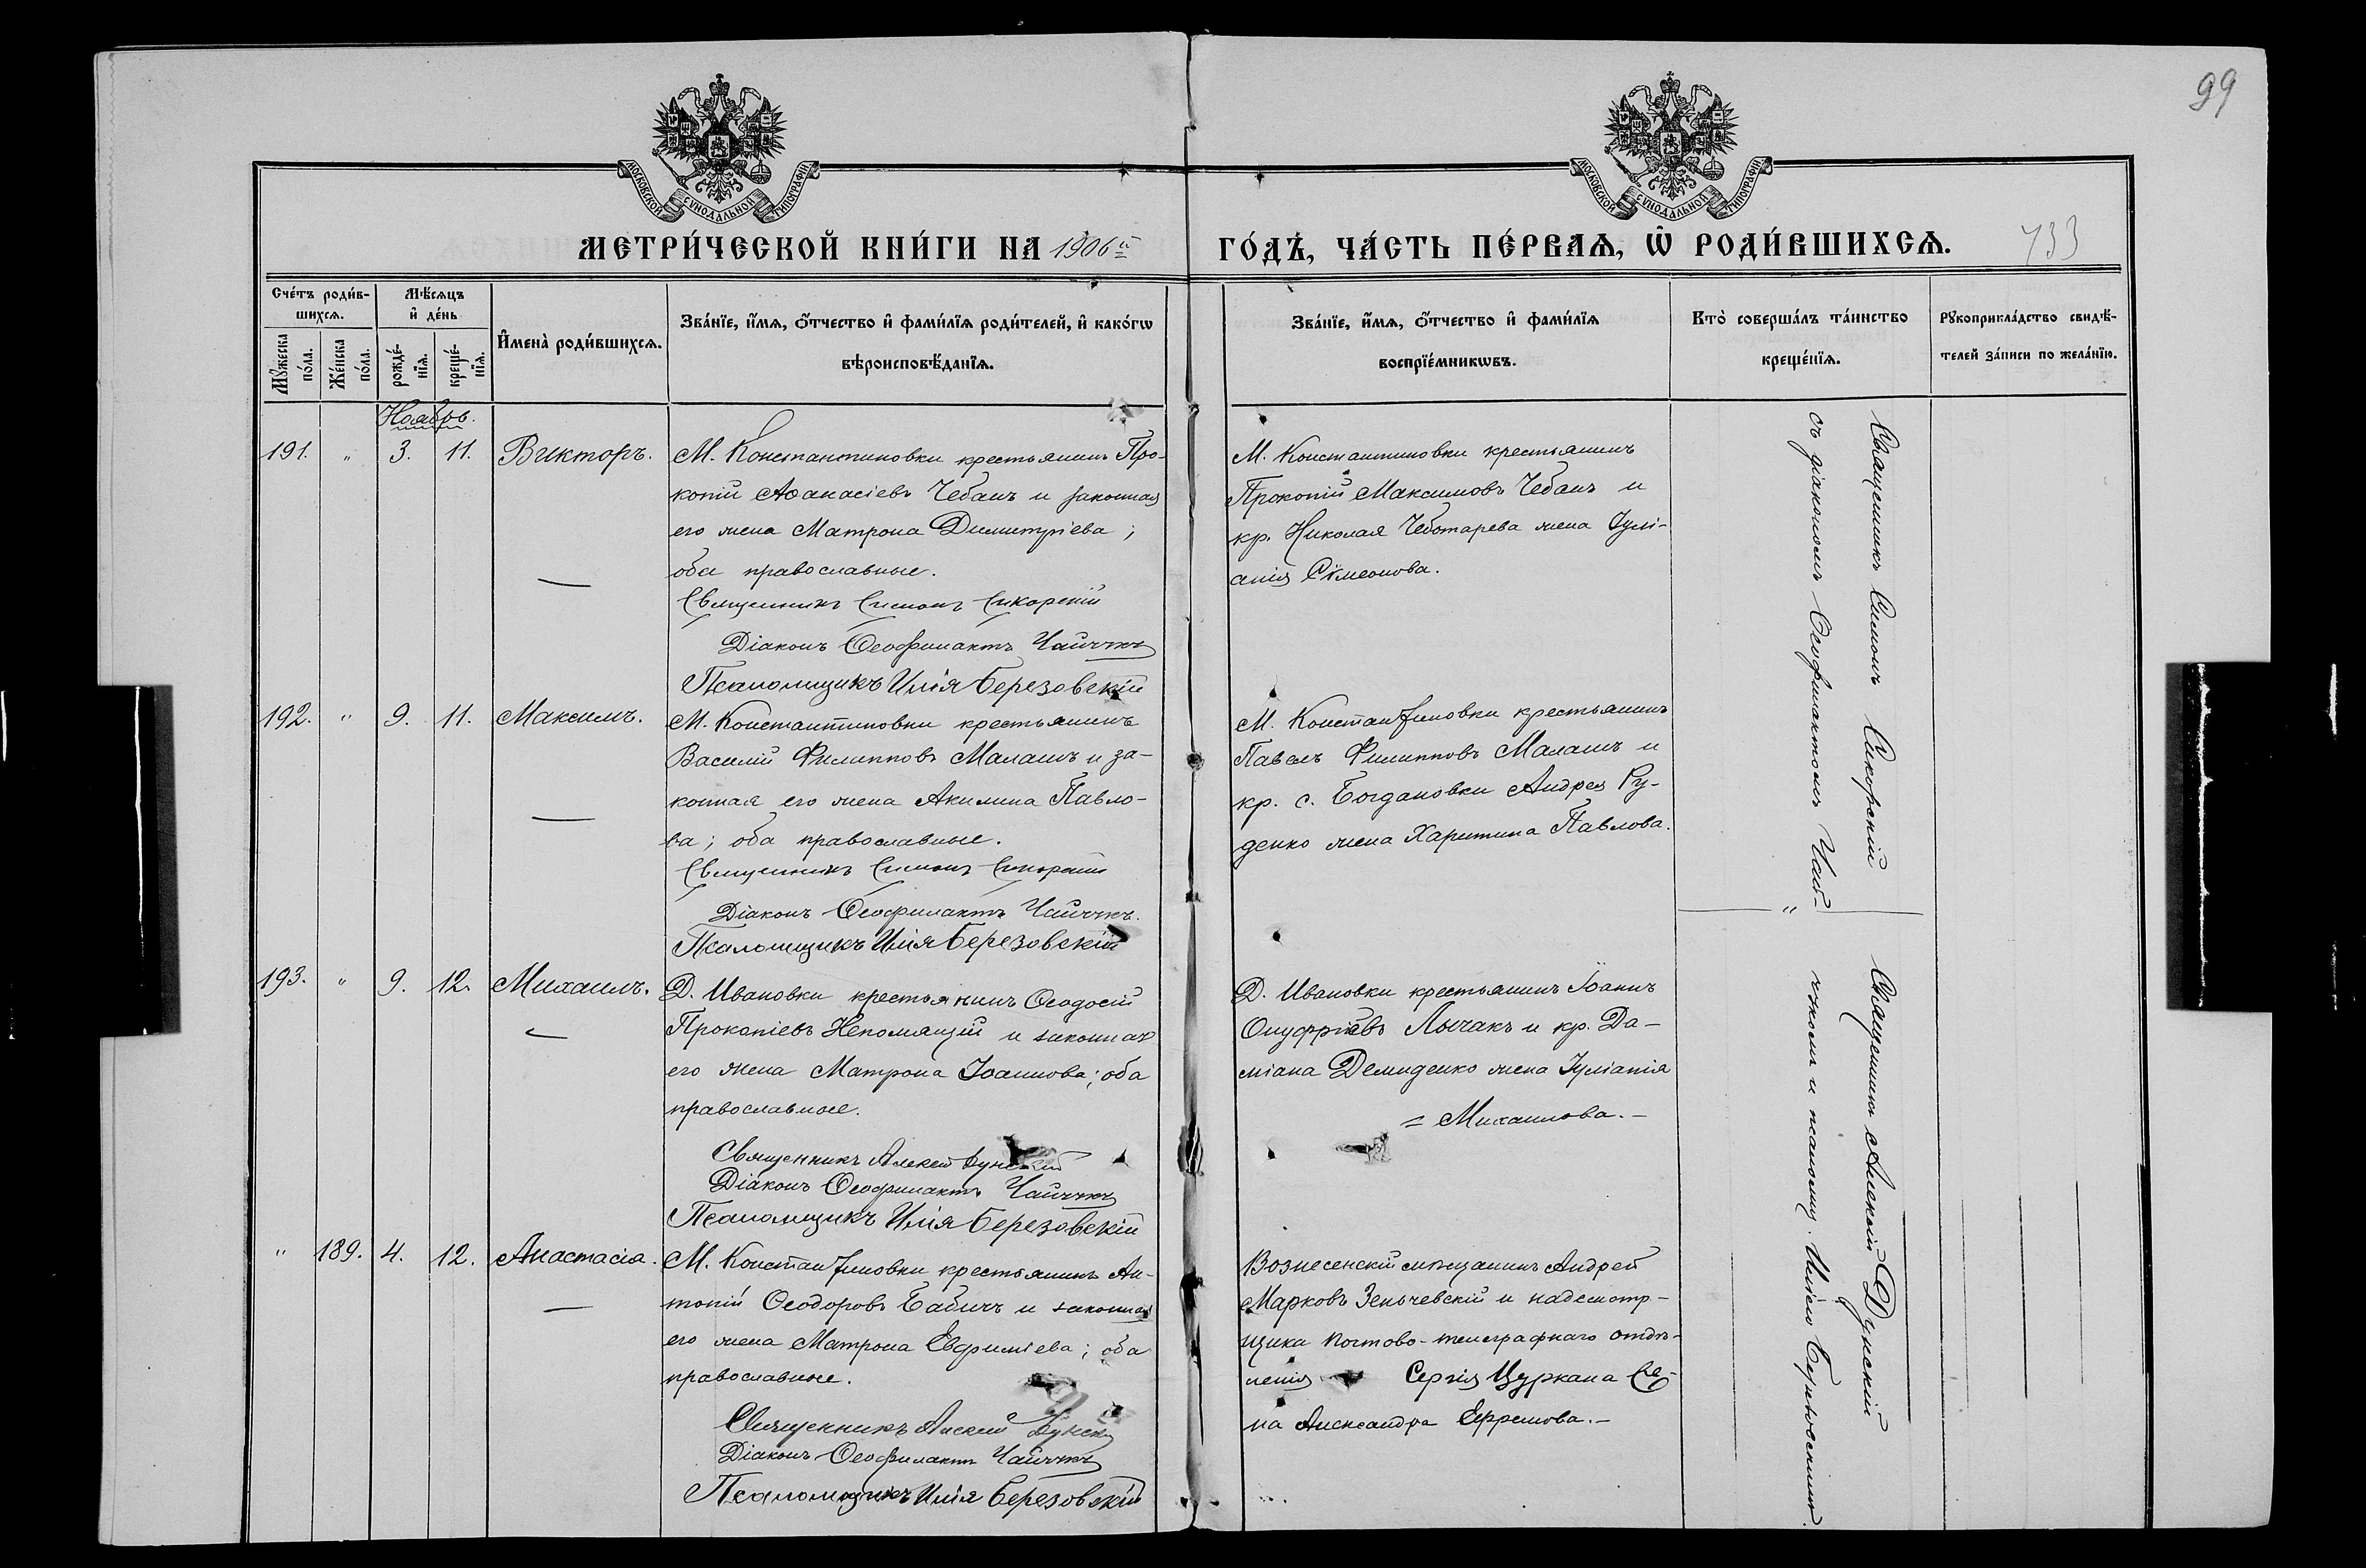 99
МОСКОВСКОЙ СѴНОДАЛЬНОЙ ТИПОГРАФІИ
МОСКОВСКОЙ СѴНОДАЛЬНОЙ ТИПОГРАФІИ
МЕТРИ́ЧЕСКОЙ КНИ́ГИ НА 1906й ГО́ДЪ, ЧА́СТЬ ПЕ́РВАѦ, Ѡ҆ РОДИ́ВШИХСѦ.
733
Сче́тъ роди́в-
шихсѧ.
Мꙋ́жеска по́ла.
Же́нска по́ла.
Мѣ́сѧцъ и҆ де́нь
рожде́-
нїѧ.
креще́-
нїѧ.
И҆мена̀ роди́вшихсѧ.
Зва́нїе, и҆́мѧ, ѻ҆́тчество и҆ фами́лїѧ роди́телей, и҆ како́гѡ
вѣроисповѣ́данїѧ.
Зва́нїе, и҆́мѧ, ѻ҆́тчество и҆ фами́лїѧ
воспрїе́мникѡвъ.
Кто̀ соверша́лъ та́инство
креще́нїѧ.
Рꙋкоприкла́дство свидѣ́-
телей за́писи по жела́нїю.
Ноябрь.
191. " 3. 11. Викторъ.
М. Константиновки крестьянинъ Про-
копій Аѳанасіевъ Чебанъ и законная
его жена Матрона Димитріева;
оба православные.
Священникъ Симонъ Сикорскій
Діаконъ Ѳеофилактъ Чайчукъ
Псаломщикъ Илія Березовскій
М. Константиновки крестьянинъ
Прокопій Максимовъ Чебанъ и
кр. Николая Чеботарева жена Іулі-
анія Сѵмеонова.
192. " 9. 11. Максимъ.
М. Константиновки крестьянинъ
Василій Филипповъ Малашъ и за-
конная его жена Акилина Павло-
ва; оба православные.
Священникъ Симонъ Сикорскій
Діаконъ Ѳеофилактъ Чайчукъ.
Псаломщикъ Илія Березовскій
М. Константиновки крестьянинъ
Павелъ Филипповъ Малашъ и
кр. с. Богдановки Андрея Ру-
денко жена Харитина Павлова.
193. " 9. 12. Михаилъ.
Д. Ивановки крестьянинъ Ѳеодосій
Прокопіевъ Непомящій и законная
его жена Матрона Іоаннова; оба
православные.
Священникъ Алексій Дунскій
Діаконъ Ѳеофилактъ Чайчукъ
Псаломщикъ Илія Березовскій
Д. Ивановки крестьянинъ Іоаннъ
Онуфріевъ Лычакъ и кр. Да-
міана Демиденко жена Іуліанія
= Михаилова.-
" 189. 4. 12. Анастасія.
М. Константиновки крестьянинъ Ан-
тоній Ѳеодоровъ Бабичъ и законная
его жена Матрона Евфиміева; оба
православные.
Священникъ Алексій Дунскій
Діаконъ Ѳеофилактъ Чайчукъ
Псаломщикъ Илія Березовскій
Вознесенскій мѣщанинъ Андрей
Марковъ Зеньчевскій и надсмотр-
щика почтово-телеграфнаго отдѣ-
ленія Сергія Цуркана же-
на Александра Ефремова.-
Священникъ Симонъ Сикорскій
съ діакономъ Ѳеофилактомъ Чай-
Священникъ Алексій Дунскій
" чукомъ и псаломщ. Иліею Березовскимъ.